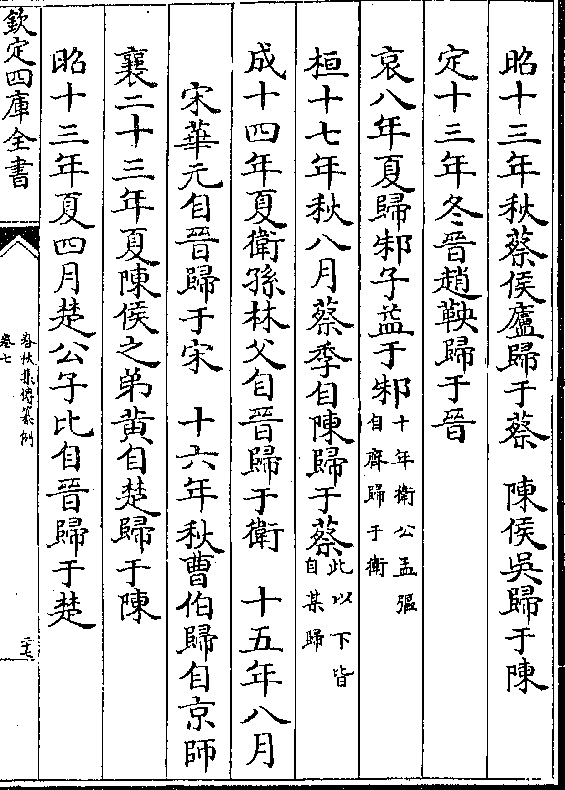 昭十三年秋蔡侯廬歸于蔡　陳侯吳歸于陳
定十三年冬晉趙鞅歸于晉
哀八年夏歸邾子益于邾十年衛公孟彄自齊歸于衛
桓十七年秋八月蔡季自陳歸于蔡此以下皆自某歸
成十四年夏衛孫林父自晉歸于衛　十五年八月
宋華元自晉歸于宋　十六年秋曹伯歸自京師
襄二十三年夏陳侯之弟黃自楚歸于陳
昭十三年夏四月楚公子比自晉歸于楚
欽定四庫全書
春秋集傳纂例
卷七